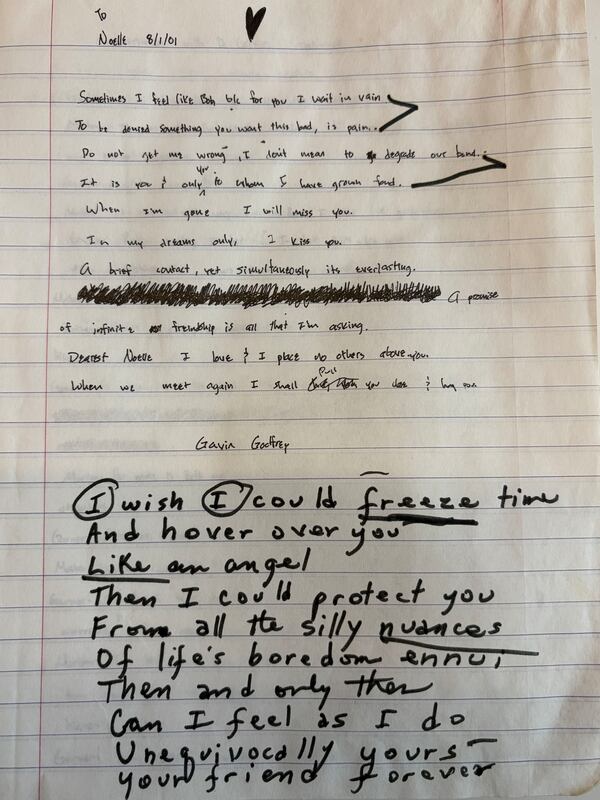 To
Noelle 8/1/01
Sometimes I feel like Bob b/c for you I wait in vain
To be denied something you want this bad, is pain..
Do not get me wrong, I don't mean to degrade our bond..
It is you & only you to whom I have grown fond.
When I'm gone I will miss you.
In my dreams only, I kiss you.
A brief contact, yet simultaneously its everlasting.
A promise
of infinite friendship is all that I'm asking.
Dearest Noelle I love & I place no others above you.
When we meet again I shall pull you close & hug you
Gavin Godfrey
I wish I could freeze time
And hover over you
Like an angel
Then I could protect you
From all the silly nuances
Of life's boredom ennui
Then and only then
Can I feel as I do
Unequivocally yours
your friend forever